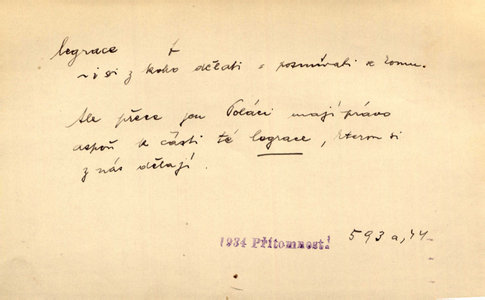 legrace
~i si z koho dělati =
Ale přece jen Poláci mají právo
aspoň k části té legrace, kterou si
z nás dělají.
1934 Přítomnost! 593a, 44